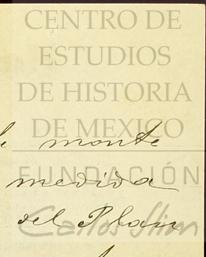 CENTRO DE
ESTUDIOS
DE HISTORIA
DE MEXICO
monte
FUNDACIÓN
medida
del Plan
Carlos Slim